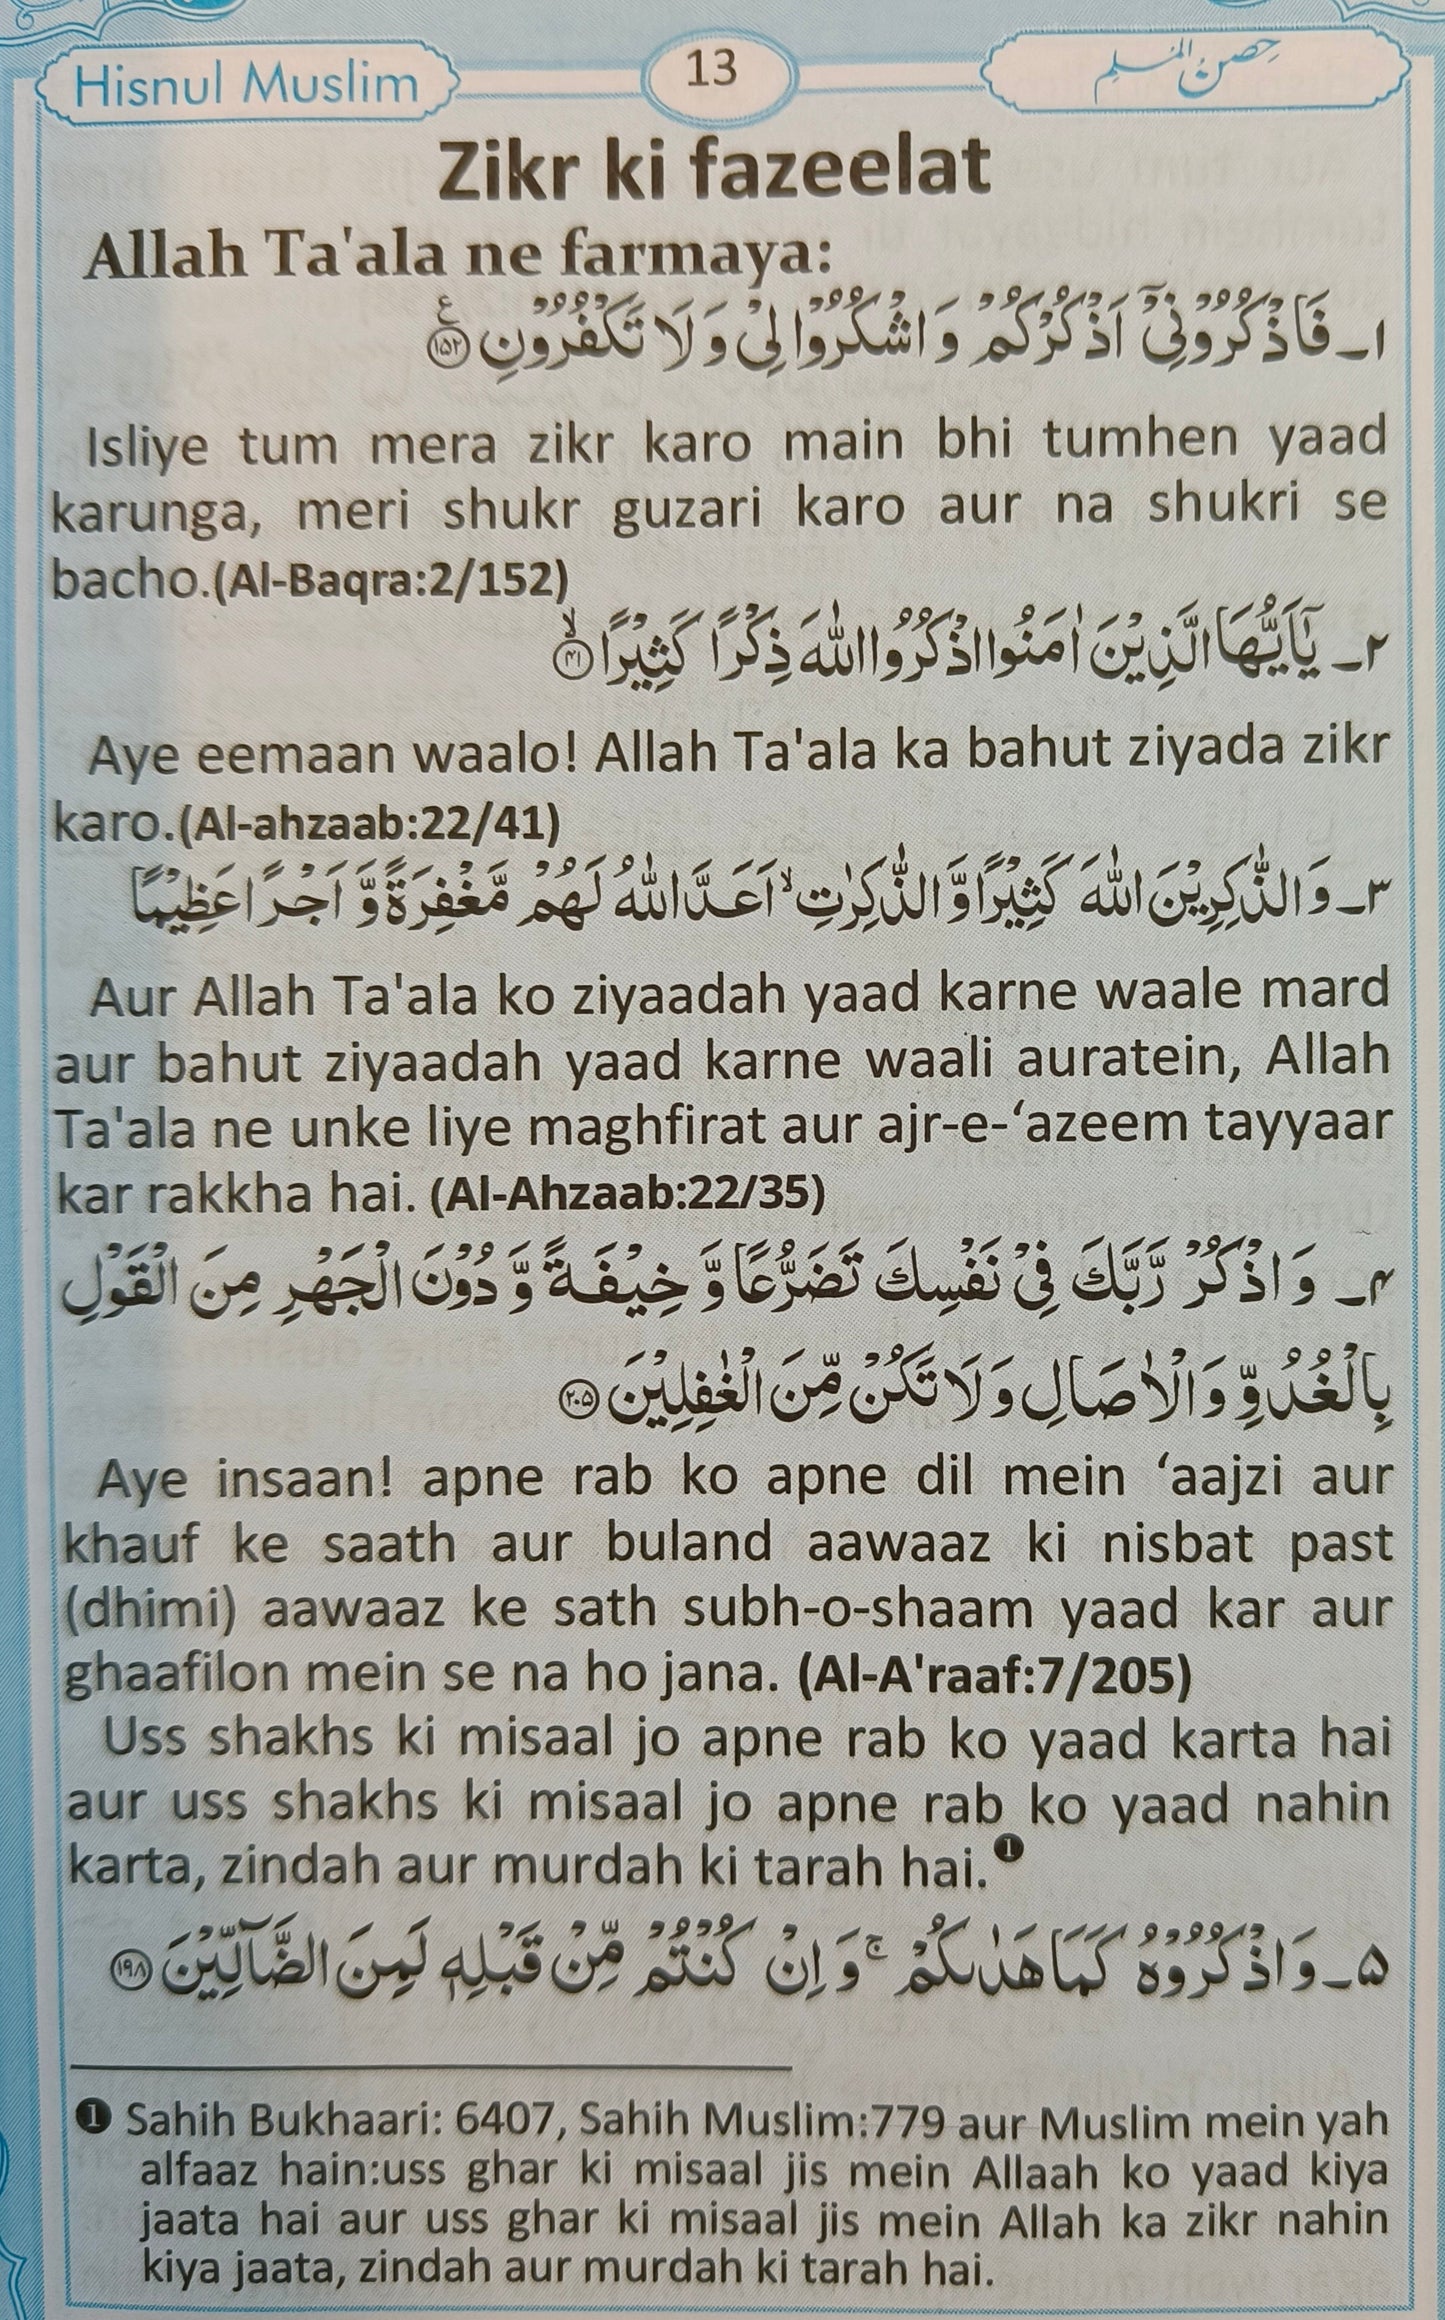 Hisnul Muslim
13
حصن المسلم
Zikr ki fazeelat
Allah Ta'ala ne farmaya:
١ـ فَاذْكُرُوْنِيْٓ اَذْكُرْكُمْ وَاشْكُرُوْا لِيْ وَلَا تَكْفُرُوْنِ ۝١٥٢ۧ
Isliye tum mera zikr karo main bhi tumhen yaad
karunga, meri shukr guzari karo aur na shukri se
bacho.(Al-Baqra:2/152)
٢ـ يٰٓاَيُّهَا الَّذِيْنَ اٰمَنُوا اذْكُرُوا اللّٰهَ ذِكْرًا كَثِيْرًا ۝٤١ۙ
Aye eemaan waalo! Allah Ta'ala ka bahut ziyada zikr
karo.(Al-ahzaab:22/41)
٣ـ وَالذّٰكِرِيْنَ اللّٰهَ كَثِيْرًا وَّالذّٰكِرٰتِ ۙ اَعَدَّ اللّٰهُ لَهُمْ مَّغْفِرَةً وَّاَجْرًا عَظِيْمًا
Aur Allah Ta'ala ko ziyaadah yaad karne waale mard
aur bahut ziyaadah yaad karne waali auratein, Allah
Ta'ala ne unke liye maghfirat aur ajr-e-‘azeem tayyaar
kar rakkha hai. (Al-Ahzaab:22/35)
۴ـ وَاذْكُرْ رَّبَّكَ فِيْ نَفْسِكَ تَضَرُّعًا وَّخِيْفَةً وَّدُوْنَ الْجَهْرِ مِنَ الْقَوْلِ
بِالْغُدُوِّ وَالْاٰصَالِ وَلَا تَكُنْ مِّنَ الْغٰفِلِيْنَ ۝٢٠۵
Aye insaan! apne rab ko apne dil mein ‘aajzi aur
khauf ke saath aur buland aawaaz ki nisbat past
(dhimi) aawaaz ke sath subh-o-shaam yaad kar aur
ghaafilon mein se na ho jana. (Al-A'raaf:7/205)
Uss shakhs ki misaal jo apne rab ko yaad karta hai
aur uss shakhs ki misaal jo apne rab ko yaad nahin
karta, zindah aur murdah ki tarah hai.❶
۵ـ وَاذْكُرُوْهُ كَمَا هَدٰىكُمْ ۚ وَاِنْ كُنْتُمْ مِّنْ قَبْلِهٖ لَمِنَ الضَّآلِّيْنَ ۝١٩٨
❶ Sahih Bukhaari: 6407, Sahih Muslim:779 aur Muslim mein yah
alfaaz hain:uss ghar ki misaal jis mein Allaah ko yaad kiya
jaata hai aur uss ghar ki misaal jis mein Allah ka zikr nahin
kiya jaata, zindah aur murdah ki tarah hai.